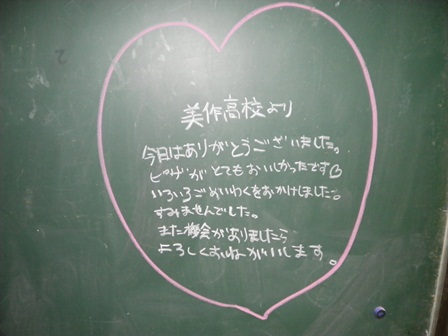 美作高校より
今日はありがとうございました。
ピザがとてもおいしかったです♡
いろいろごめいわくをおかけしました。
すみませんでした。
また機会がありましたら
よろしくおねがいします。